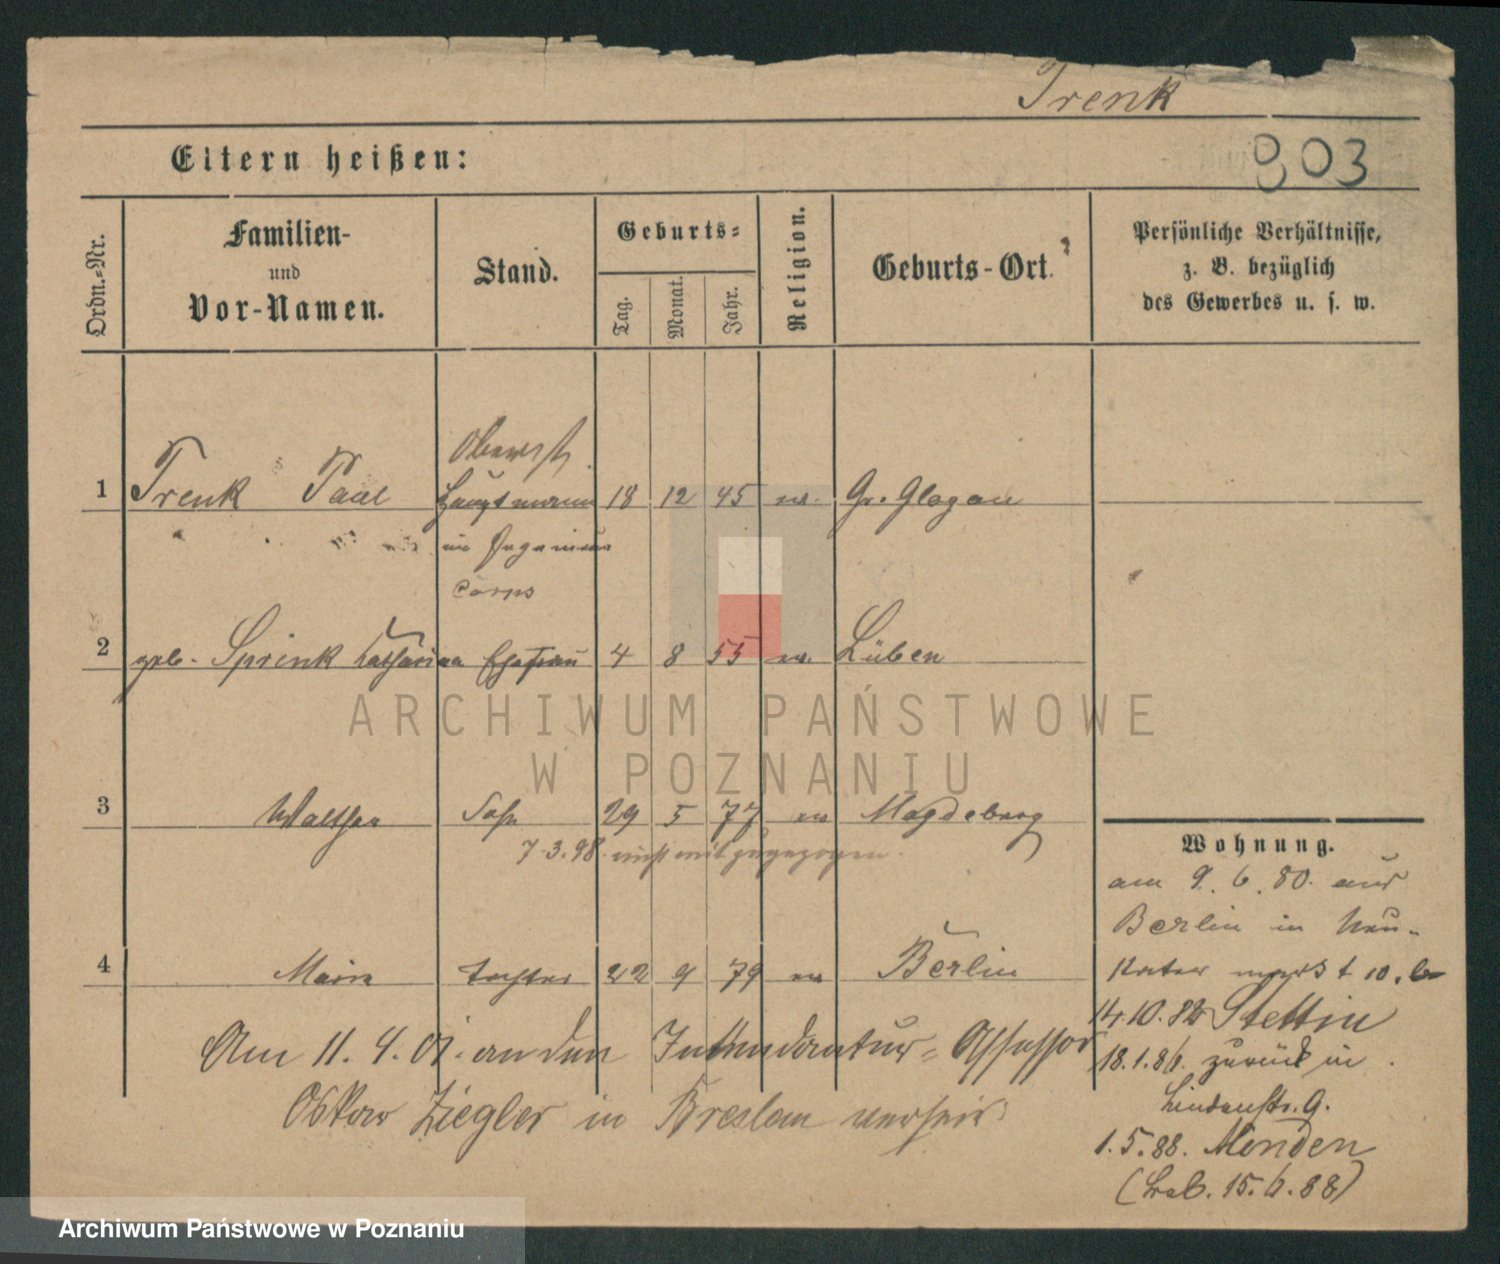 Trenk
903
Eltern heißen:
Ordn.-Nr.
Familien-
und
Vor-Namen.
Stand.
Geburts-
Tag.
Monat.
Jahr.
Religion.
Geburts-Ort.
Persönliche Verhältnisse,
z. B. bezüglich
des Gewerbes u. s. w.
Oberst
1 Trenk Paul Hauptmann 18 12 45 ev. Gr. Glogau
im Ingenieur
Corps
2 geb. Sprink Katharina Ehefrau 4 8 55 ev. Lüben
ARCHIWUM PAŃSTWOWE
W POZNANIU
3 Walther Sohn 29 5 77 ev Magdeburg
7.3.98. nicht mit zugezogen.
4 Marie Tochter 22 9 79 ev Berlin
Am 11. 4. 01. an den Intendantur-Assessor
Oskar Ziegler in Breslau verheir.
Wohnung.
am 9. 6. 80. aus
Berlin in Neu-
14.10.82 Stettin
18.1.86. zurück in
Lindenstr. 9.
1.5.88. Minden
(Lab. 15.6.88)
Archiwum Państwowe w Poznaniu